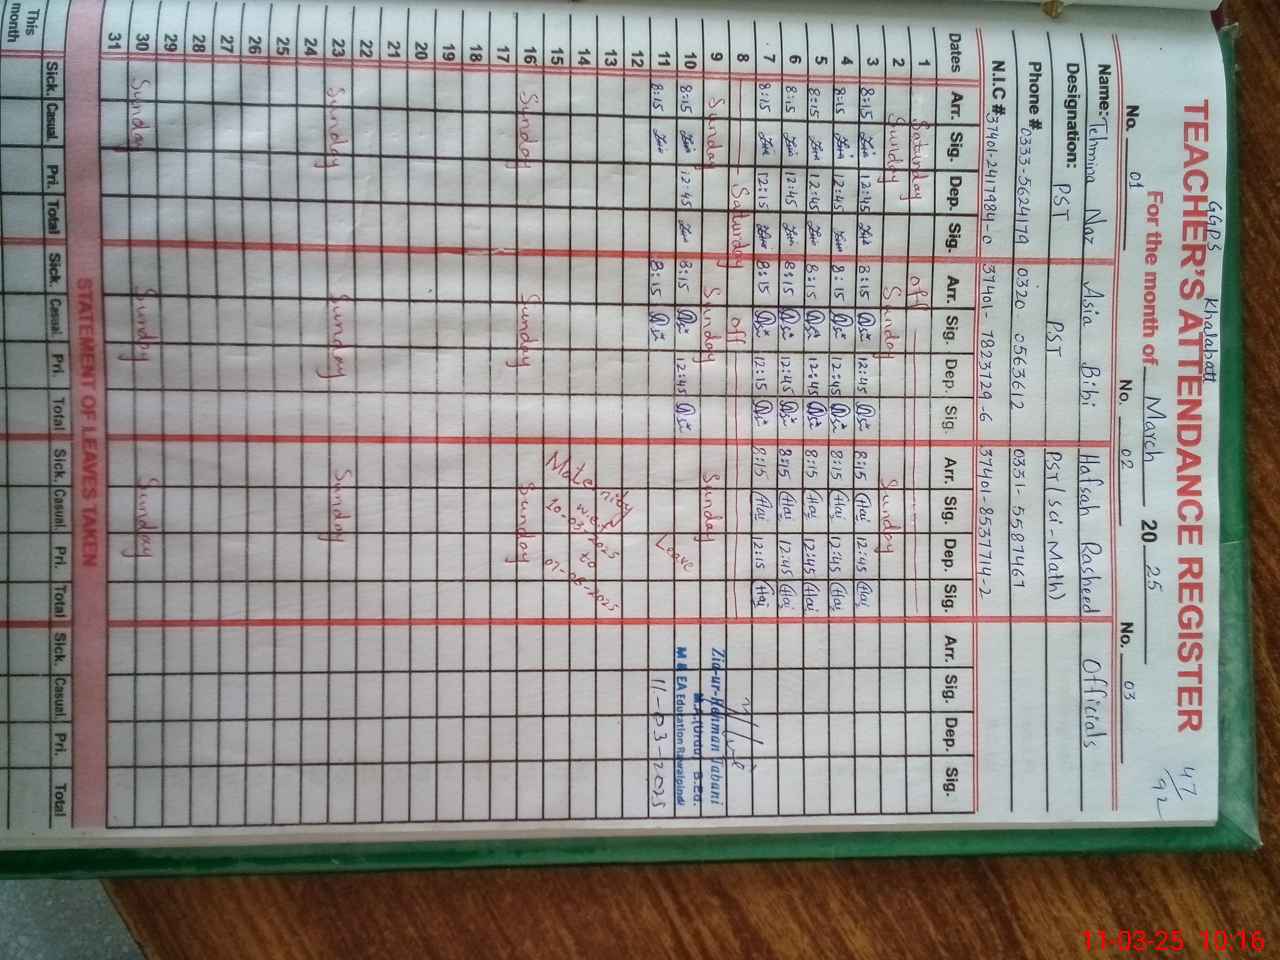 GGPS Khalabatt
47/92
TEACHER'S ATTENDANCE REGISTER
For the month of March 2025
No. 01 No. 02 No. 03
Name: Tehmina Naz Asia Bibi Hafsah Rasheed Officials
Designation: PST PST PST(Sci-Math)
Phone # 0333-5624179 0320 0563612 0331-5587467
N.I.C # 37401-2417984-0 37401-7823729-6 37401-8537714-2
Dates Arr. Sig. Dep. Sig. Arr. Sig. Dep. Sig. Arr. Sig. Dep. Sig. Arr. Sig. Dep. Sig.
1 Saturday off
2 Sunday Sunday Sunday
3 8:15 12:45 8:15 12:45 8:15 Haj 12:45 Haj
4 8:15 12:45 8:15 12:45 8:15 Haj 12:45 Haj
5 8:15 12:45 8:15 12:45 8:15 Haj 12:45 Haj
6 8:15 12:45 8:15 12:45 8:15 Haj 12:45 Haj
7 8:15 12:15 8:15 12:15 8:15 Haj 12:15 Haj
8 Saturday off
9 Sunday Sunday Sunday Zia-ur-Rehman Jabani
M.A.(Urdu) B.Ed.
10 8:15 12:45 8:15 12:45 M & EA Education Rawalpindi
11 8:15 8:15 Leave 11-03-2025
12
13
14
15 Maternity w.e.f 10-03-2025 to 07-06-2025
16 Sunday Sunday Sunday
17
18
19
20
21
22
23 Sunday Sunday Sunday
24
25
26
27
28
29
30 Sunday Sunday Sunday
31
STATEMENT OF LEAVES TAKEN
Sick. Casual. Pri. Total Sick. Casual. Pri. Total Sick. Casual. Pri. Total Sick. Casual. Pri. Total
This month
11-03-25 10:16